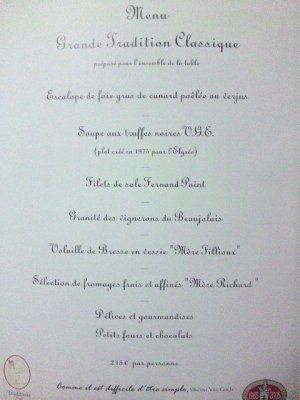 Menu
Grande Tradition Classique
préparé pour l'ensemble de la table
Escalope de foie gras de canard poêlée au verjus
Soupe aux truffes noires V.G.E.
(plat créé en 1975 pour l'Elysée)
Filets de sole Fernand Point
Granité des vignerons du Beaujolais
Volaille de Bresse en vessie "Mère Fillioux"
Sélection de fromages frais et affinés "Mère Richard"
Délices et gourmandises
Petits fours et chocolats
215€ par personne
Comme il est difficile d'être simple, Vincent Van Gogh